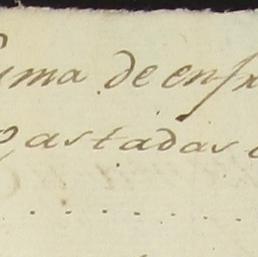 uma de enfr
Gastadas